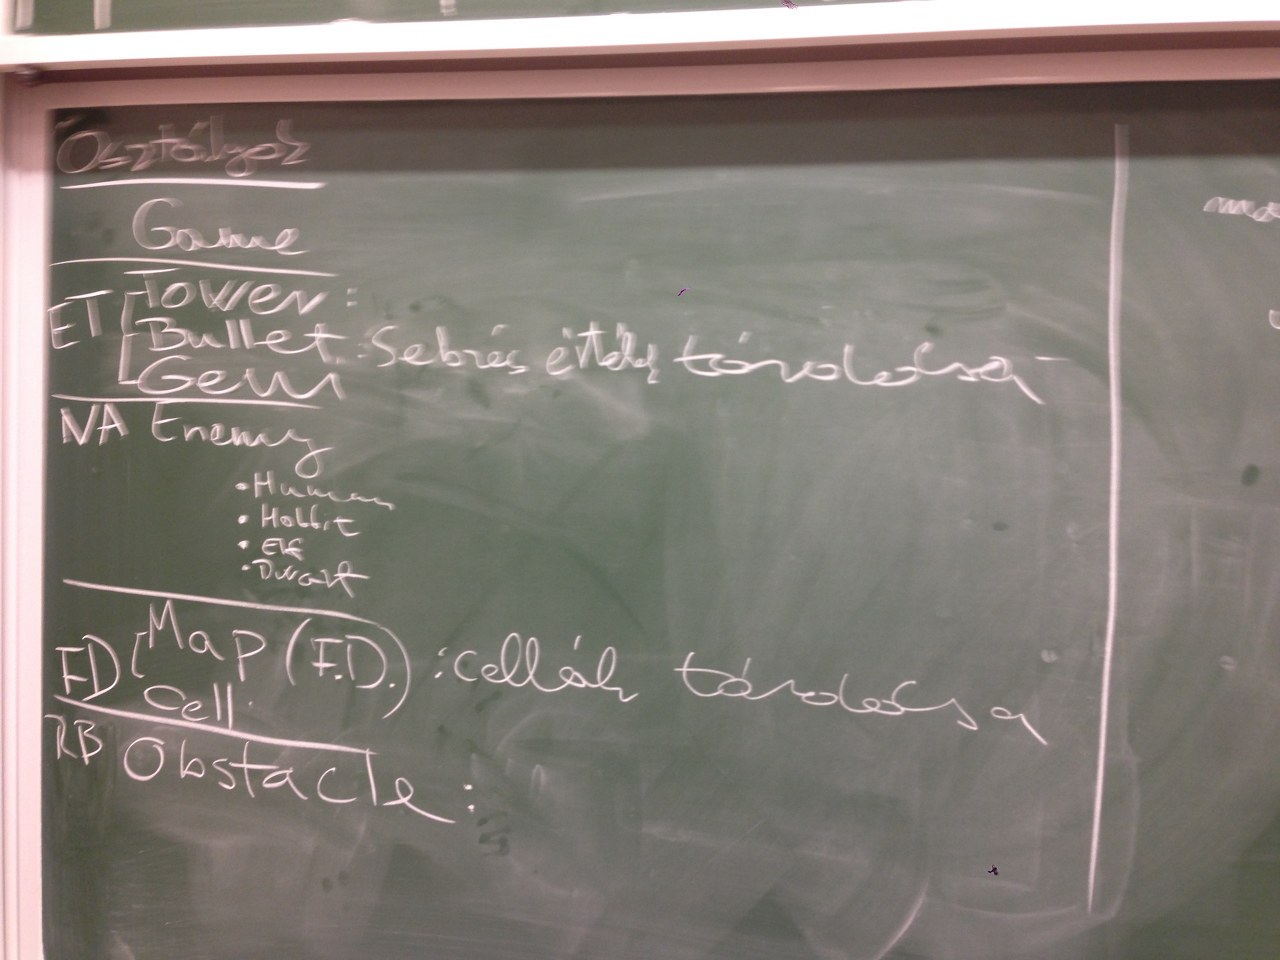 Osztályok
Game
ET Tower:
Bullet: Sebzés érték tárolása
Gem
NA Enemy
• Human
• Hobbit
• Elf
• Dwarf
FD Map (F.D.) : cellák tárolása
Cell
RB Obstacle: